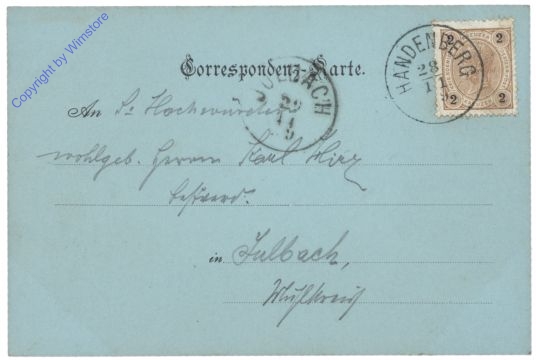 Copyright by Wimstore
2 2
2 2
HANDENBERG
28
11
Correspondenz-Karte.
JULBACH
29
11
An Sr Hochwürden
wohlgeb. Herrn Karl Hirz
in Julbach,
Mühlkreis